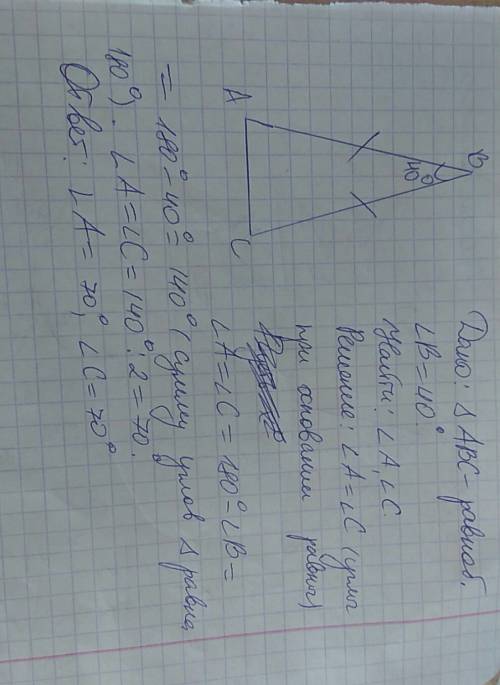 B
40°
A
C
Дано: Δ ABC - равноб.
∠B = 40°
Найти: ∠A, ∠C.
Решение: ∠A = ∠C (углы
при основании равны)
∠A = ∠C = 180° - ∠B =
= 180° - 40° = 140° (сумма углов Δ равна
180°). ∠A = ∠C = 140° : 2 = 70.
Ответ: ∠A = 70°, ∠C = 70°